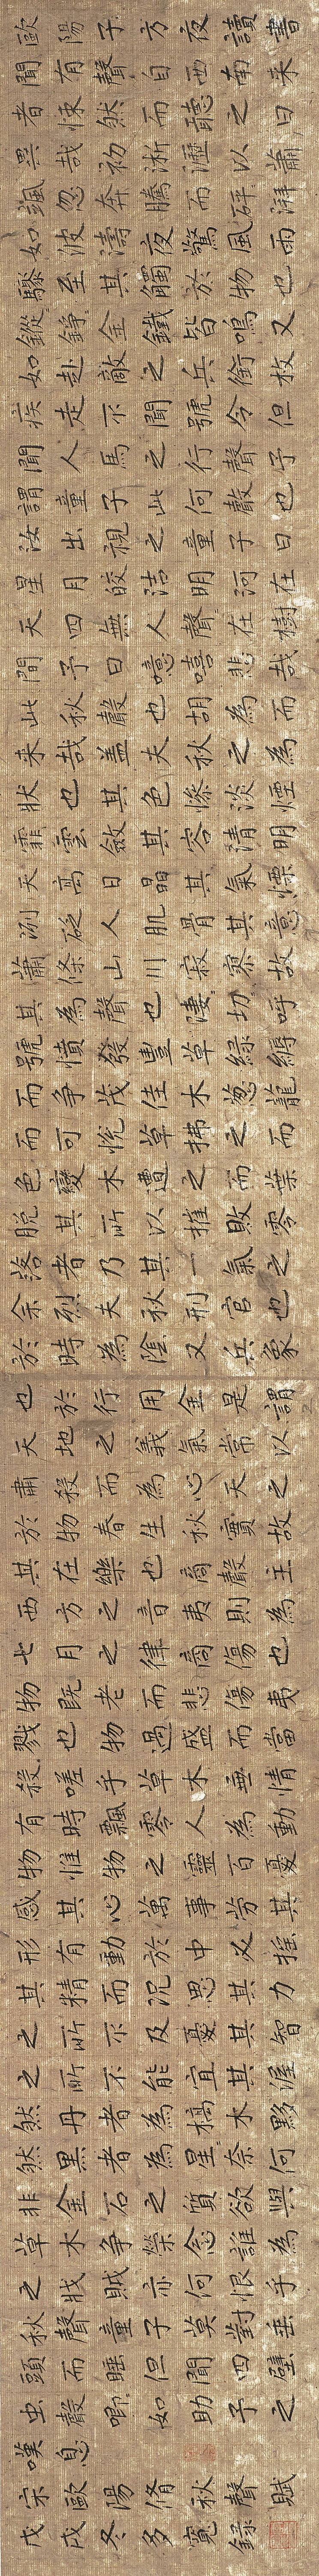 歐陽子方夜讀書
聞有聲自西南來
者悚然而聽之曰
異哉初淅瀝以蕭
颯忽奔騰而砰湃
如波濤夜驚風雨
驟至其觸於物也
鏦〻錚〻金鐵皆鳴又
如赴敵之兵銜枚
疾走不聞號令但
聞人馬之行聲予
謂童子此何聲也
汝出視之童子曰
星月皎潔明河在
天四無人聲〻在樹
間予曰噫嘻悲哉
此秋聲也胡為而
來哉盖夫秋之為
狀也其色慘淡煙
霏雲斂其容清明
天高日晶其氣慄
冽砭人肌骨其意
蕭條山川寂寥故
其為聲也凄〻切〻呼
號憤發豐草綠縟
而爭茂佳木葱蘢
而可悅草拂之而
色變木遭之而葉
脫其所以摧敗零
落者乃其一氣之
余烈夫秋刑官也
於時為陰又兵象
也於行用金是謂
天地之義氣常以
肅殺而為心天之
於物春生秋實故
其在樂也商聲主
西方之音夷則為
七月之律商傷也
物既老而悲傷夷
戮也物過盛而當
殺嗟乎草木無情
有時飄零人為動
物惟物之靈百憂
感其心萬事勞其
形有動於中必搖
其精而況思其力
之所不及憂其智
之所不能宜其渥
然丹者為槁木黟
然黑者為星〻奈何
非金石之質欲與
草木爭榮念誰為
之戕賊亦何恨乎
秋聲童子莫對垂
頭而睡但聞四壁
虫聲唧〻如助予之
嘆息
宋歐陽修秋聲賦
戊戌冬多寬錄